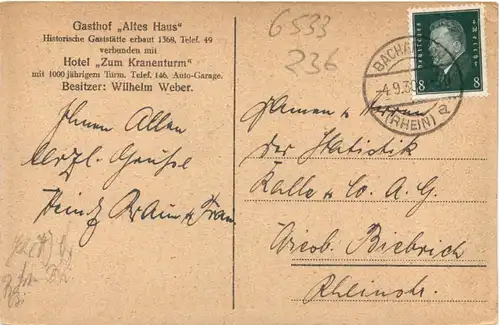 Gasthof „Altes Haus"
Historische Gaststätte erbaut 1368, Telef. 49
verbunden mit
Hotel „Zum Kranenturm"
mit 1000 jährigem Turm. Telef. 146. Auto-Garage.
Besitzer: Wilhelm Weber.
6533
236
Deutsches Reich
8 8
BACHA
-4.9.30
(RHEIN) a
Ihnen Allen
Herzl. Grüße
Heinz Braun u Frau
Damen u Herren
der Statistik
Kalle & Co. A. G.
Biebrich
Rheinstr.